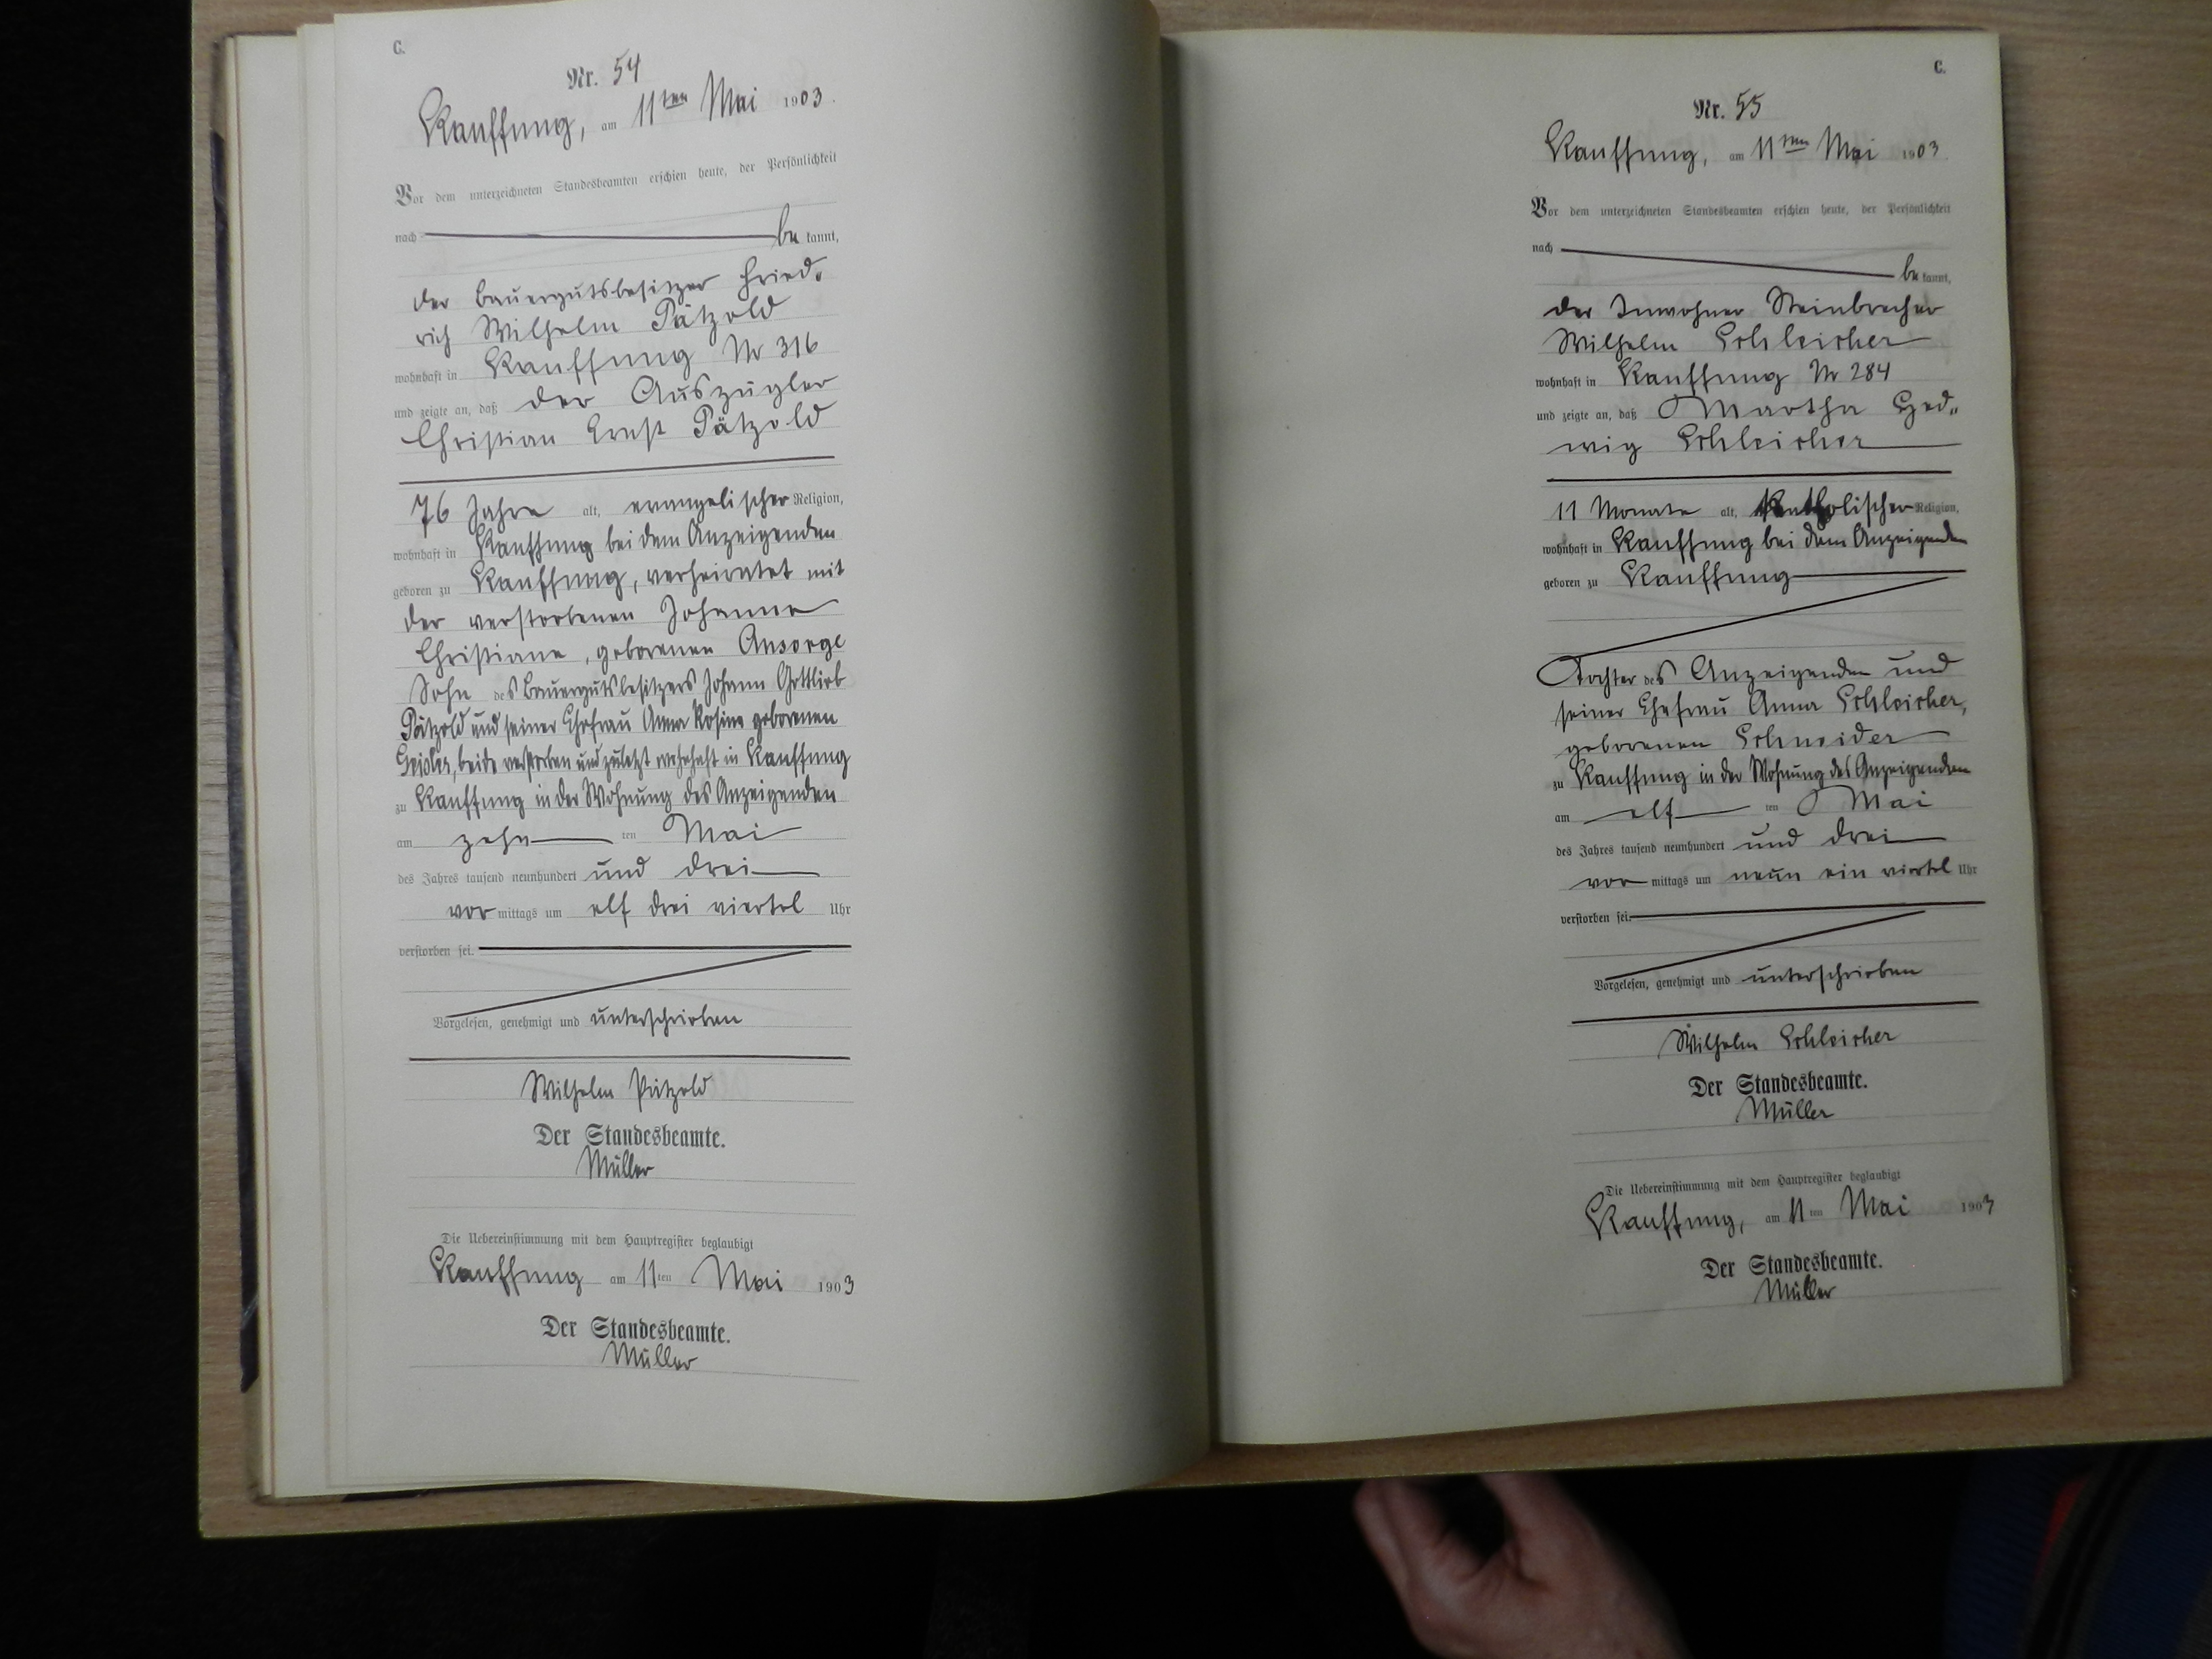 C.
Nr. 54
Kauffung, am 11ten Mai 1903.
Vor dem unterzeichneten Standesbeamten erschien heute, der Persönlichkeit
nach be kannt,
der Bauergutsbesitzer Fried-
rich Wilhelm Pätzold
wohnhaft in Kauffung Nr 316
und zeigte an, daß der Auszügler
Christian Ernst Pätzold
76 Jahre alt, evangelischer Religion,
wohnhaft in Kauffung bei dem Anzeigenden
geboren zu Kauffung, verheiratet mit
der verstorbenen Johanne
Christiane, geborenen Ansorge
Sohn des Bauergutsbesitzers Johann Gottlieb
Pätzold und seiner Ehefrau Anna Rosina geborenen
Geisler, beide verstorben und zuletzt wohnhaft in Kauffung
zu Kauffung in der Wohnung des Anzeigenden
am zehn ten Mai
des Jahres tausend neunhundert und drei
vor mittags um elf drei viertel Uhr
verstorben sei.
Vorgelesen, genehmigt und unterschrieben
Wilhelm Pätzold
Der Standesbeamte.
Müller
Die Uebereinstimmung mit dem Hauptregister beglaubigt
Kauffung am 11ten Mai 1903
Der Standesbeamte.
Müller
C.
Nr. 55
Kauffung, am 11ten Mai 1903.
Vor dem unterzeichneten Standesbeamten erschien heute, der Persönlichkeit
nach be kannt,
der Inwohner Steinbrecher
Wilhelm Schleicher
wohnhaft in Kauffung Nr 284
und zeigte an, daß Martha Hed-
wig Schleicher
11 Monate alt, katholischer Religion,
wohnhaft in Kauffung bei dem Anzeigenden
geboren zu Kauffung
Tochter des Anzeigenden und
seiner Ehefrau Anna Schleicher,
geborenen Schneider
zu Kauffung in der Wohnung des Anzeigenden
am elf ten Mai
des Jahres tausend neunhundert und drei
vor mittags um neun ein viertel Uhr
verstorben sei.
Vorgelesen, genehmigt und unterschrieben
Wilhelm Schleicher
Der Standesbeamte.
Müller
Die Uebereinstimmung mit dem Hauptregister beglaubigt
Kauffung, am 11ten Mai 1903
Der Standesbeamte.
Müller